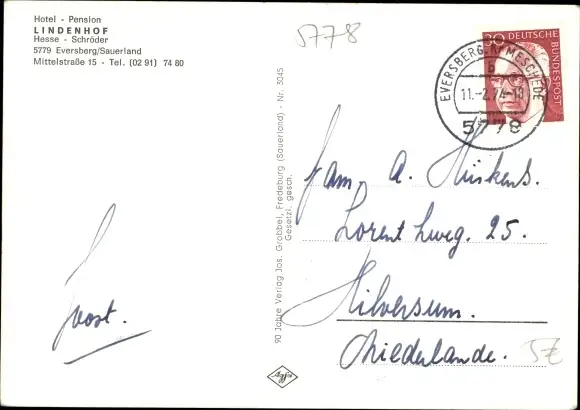 Hotel - Pension
LINDENHOF
Hesse - Schröder
5779 Eversberg/Sauerland
Mittelstraße 15 - Tel. (02 91) 74 80
5778
30 DEUTSCHE BUNDESPOST
EVERSBERG, KR MESCHEDE
b
11.-2.74-18
5778
90 Jahre Verlag Jos. Grobbel, Fredeburg (Sauerland) - Nr. 5045
Gesetzl. gesch.
Agfa
Joost.
Fam. A. Hüskens.
Lorentzweg. 25.
Hilversum.
Niederlande.
5€